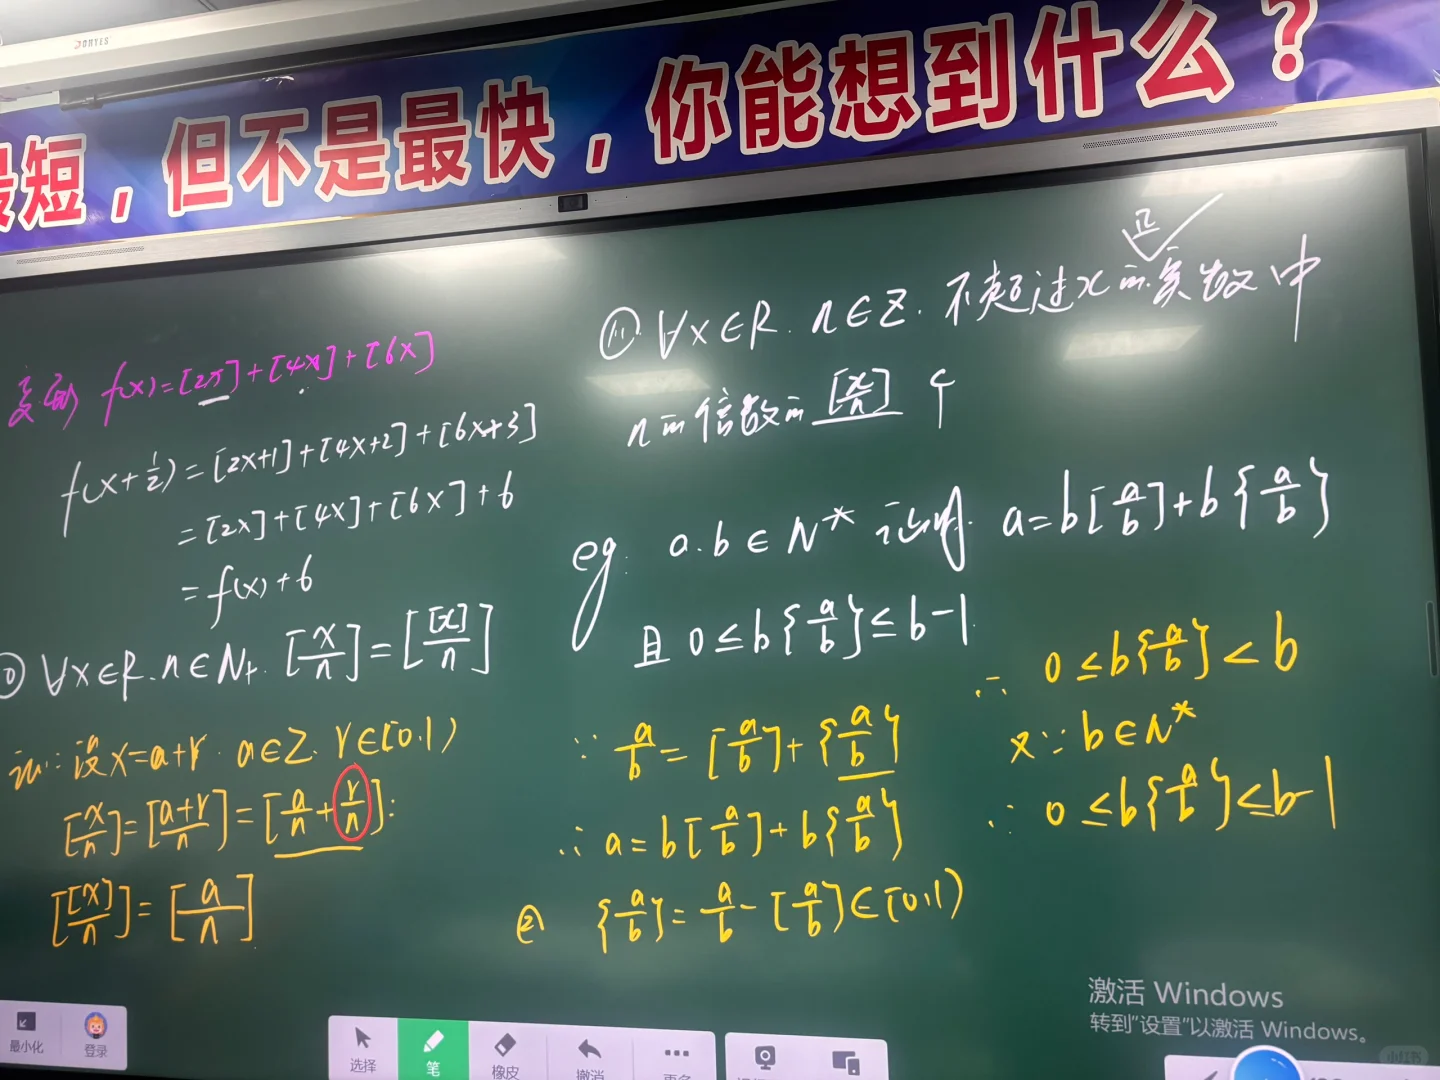 DONYES
最短，但不是最快，你能想到什么？
f(x)=[2x]+[4x]+[6x]
f(x+1/2)=[2x+1]+[4x+2]+[6x+3]
=[2x]+[4x]+[6x]+6
=f(x)+6
∀x∈R.n∈N₊ [x/n]=[[x]/n]
证:设x=a+r.a∈Z.r∈[0,1)
[x/n]=[(a+r)/n]=[a/n+r/n]:
[[x]/n]=[a/n]
正
⑪∀x∈R.n∈Z.不超过x的实数中
n的倍数的[x/n]个
eg. a.b∈N* 证明. a=b[a/b]+b{a/b}
且0≤b{a/b}≤b-1
∵a/b=[a/b]+{a/b}
∴a=b[a/b]+b{a/b}
② {a/b}=a/b-[a/b]∈[0,1)
∴ 0≤b{a/b}<b
又∵b∈N*
∴0≤b{a/b}≤b-1
激活 Windows
转到"设置"以激活 Windows。
最小化 登录 选择 笔 橡皮 撤消 更多
小红书